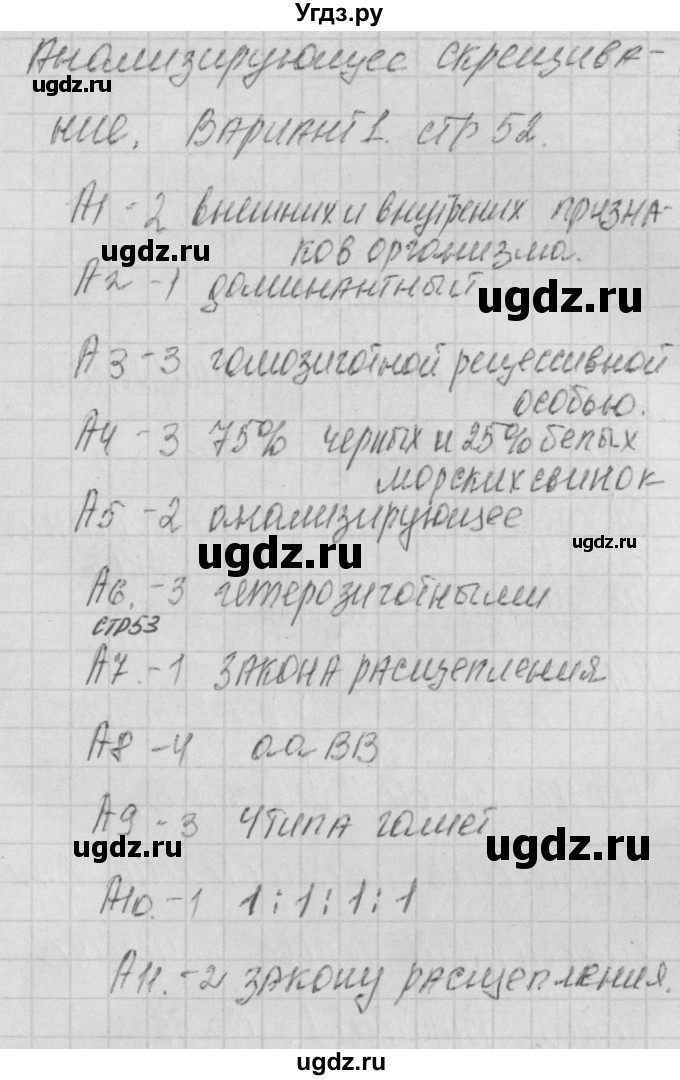 Угдз.ру
Анализирующее скрещива-
ugdz.ru
ние. Вариант 1. стр 52.
А1 - 2 внешних и внутрених призна-
ugdz.ru
ков организма.
А2 - 1 доминантный
ugdz.ru
А3 - 3 гомозиготной рецессивной
особью.
А4 - 3 75% черных и 25% белых
морских свинок
А5 - 2 анализирующее
ugdz.ru
ugdz.ru
А6. - 3 гетерозиготными
стр53
А7. - 1 закона расщепления
ugdz.ru
ugdz.ru
А8 - 4 ааВВ
А9 - 3 4 типа гамет
ugdz.ru
ugdz.ru
А10. - 1 1:1:1:1
А11. - 2 закону расщепления.
ugdz.ru